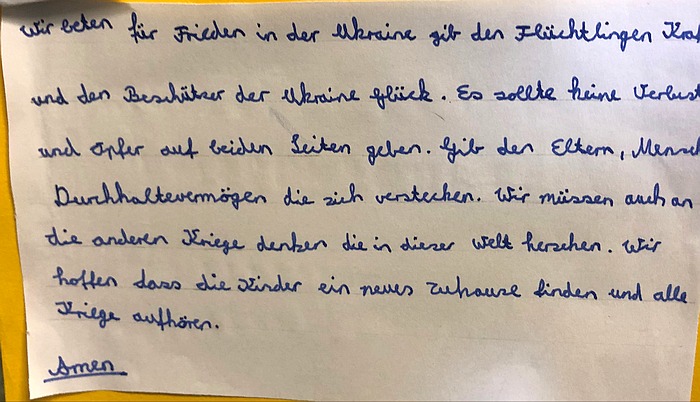 wir beten für Frieden in der Ukraine gib den Flüchtlingen Kraf
und den Beschützer der Ukraine glück. Es sollte keine Verlust
und Opfer auf beiden Seiten geben. Gib den Eltern, Mensch
Durchhaltevermögen die sich verstecken. Wir müssen auch an
die anderen Kriege denken die in dieser Welt herschen. Wir
hoffen dass die Kinder ein neues zuhause finden und alle
Kriege aufhören.
Amen